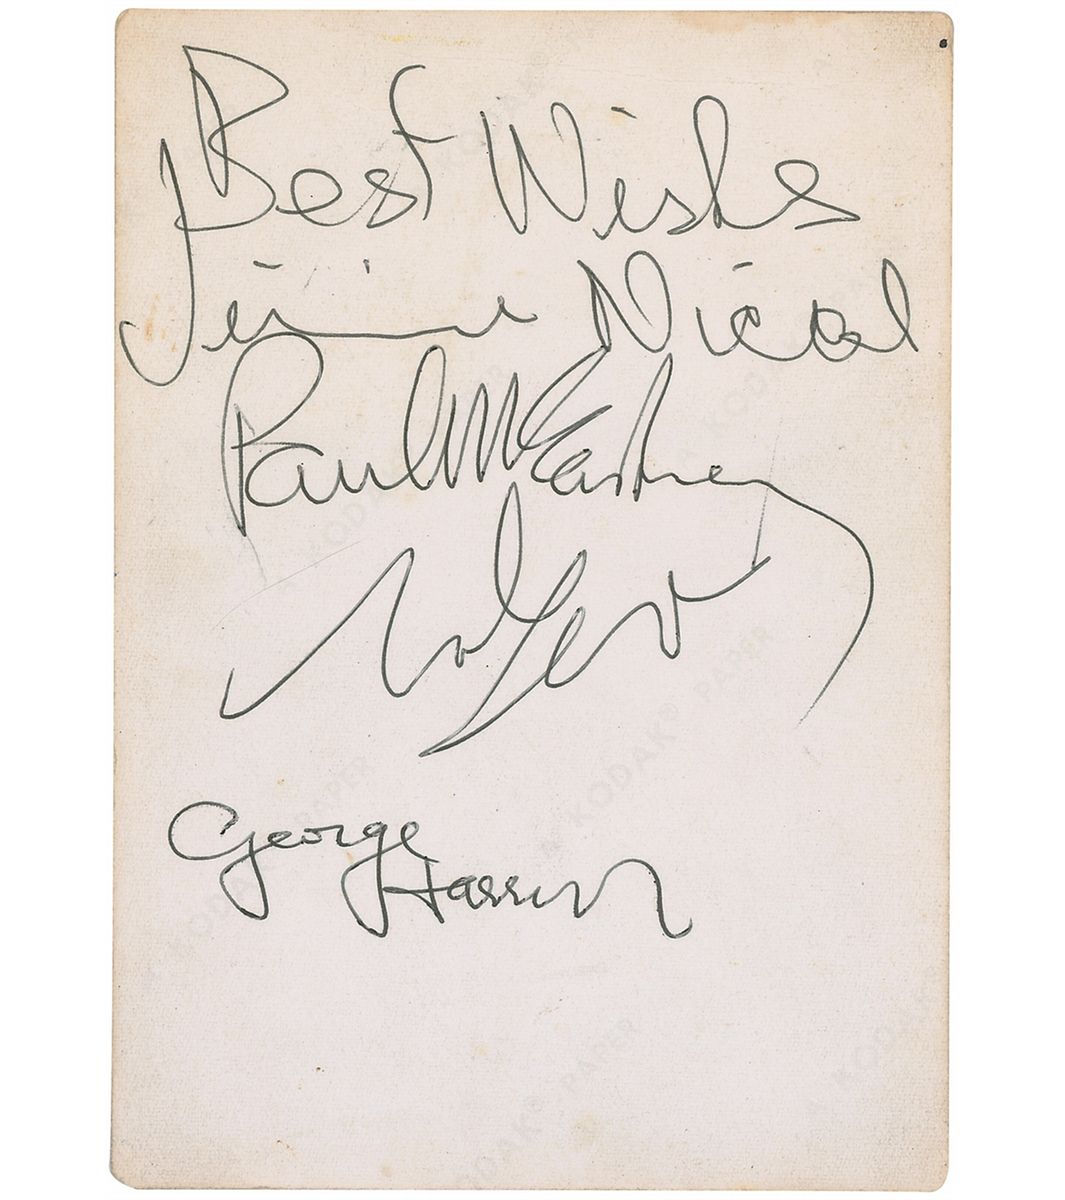 Best Wishes
Jimmie Nicol
Paul McCartney
George
Harrison
KODAK PAPER
KODAK® PAPER
KODAK® PAPER
KODAK